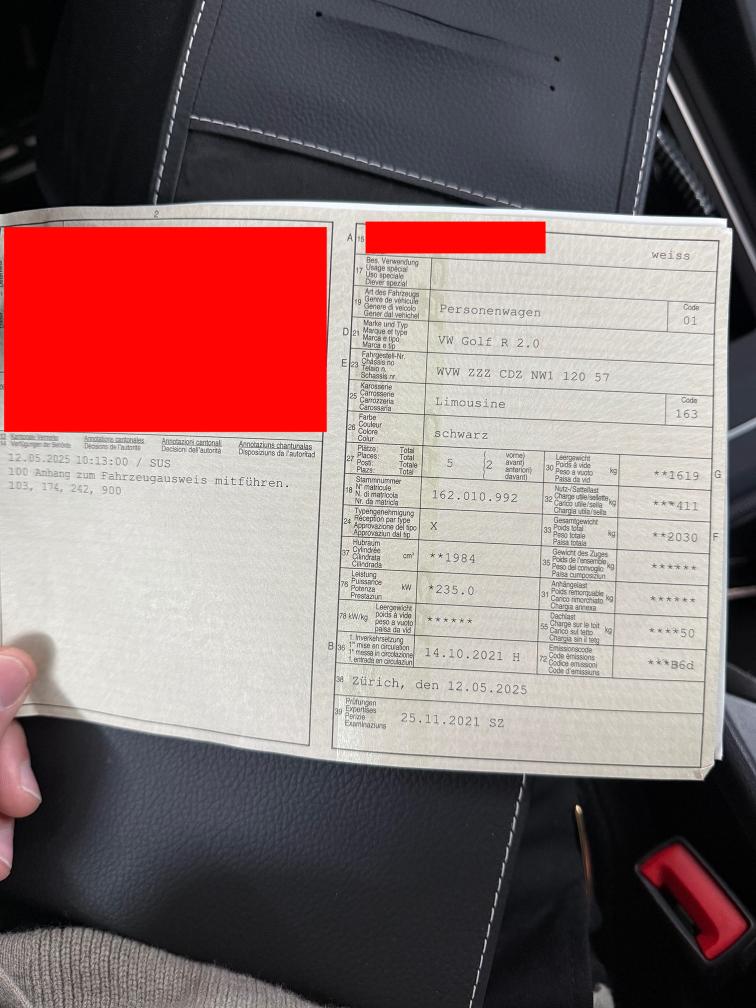 2
Kantonale Vermerke
Verfügungen der Behörde
Annotations cantonales
Décisions de l'autorité
Annotazioni cantonali
Decisioni dell'autorità
Annotaziuns chantunalas
Disposiziuns da l'autoritad
12.05.2025 10:13:00 / SUS
100 Anhang zum Fahrzeugausweis mitführen.
103, 174, 242, 900
A 15
weiss
17 Bes. Verwendung
Usage spécial
Uso speciale
Diever spezial
19 Art des Fahrzeugs
Genre de véhicule
Genere di veicolo
Gener dal vehichel
Personenwagen
Code
01
D 21 Marke und Typ
Marque et type
Marca e tipo
Marca e tip
VW Golf R 2.0
E 23 Fahrgestell-Nr.
Châssis no
Telaio n.
Schassis nr.
WVW ZZZ CDZ NW1 120 57
25 Karosserie
Carrosserie
Carrozzeria
Carossaria
Limousine
Code
163
26 Farbe
Couleur
Colore
Colur
schwarz
27 Plätze: Total
Places: Total
Posti: Totale
Plazs: Total
5
(2
vorne)
avant)
anteriori)
davant)
30 Leergewicht
Poids à vide
Peso a vuoto
Paisa da vid
kg
**1619
G
18 Stammnummer
N° matricule
N. di matricola
Nr. da matricla
162.010.992
32 Nutz-/Sattellast
Charge utile/sellette
Carico utile/sella
Chargia utila/sella
kg
***411
24 Typengenehmigung
Réception par type
Approvazione del tipo
Approvaziun dal tip
X
33 Gesamtgewicht
Poids total
Peso totale
Paisa totala
kg
**2030
F
37 Hubraum
Cylindrée
Cilindrata
Cilindrada
cm³
**1984
35 Gewicht des Zuges
Poids de l'ensemble
Peso del convoglio
Paisa cumposiziun
kg
******
76 Leistung
Puissance
Potenza
Prestaziun
kW
*235.0
31 Anhängelast
Poids remorquable
Carico rimorchiato
Chargia annexa
kg
******
78 kW/kg
Leergewicht
poids à vide
peso a vuoto
paisa da vid
******
55 Dachlast
Charge sur le toit
Carico sul tetto
Chargia sin il tetg
kg
****50
B 36 1. Inverkehrsetzung
1re mise en circulation
1a messa in circolazione
1. entrada en circulaziun
14.10.2021 H
72 Emissionscode
Code émissions
Codice emissioni
Code d'emissiuns
***B6d
38 Zürich, den 12.05.2025
39 Prüfungen
Expertises
Perizie
Examinaziuns
25.11.2021 SZ